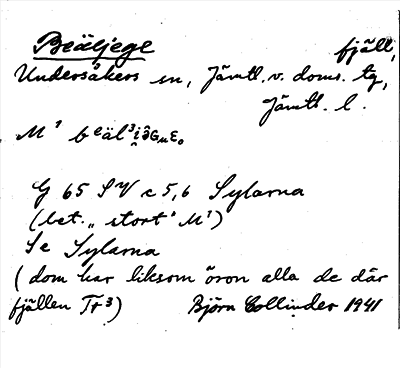 Beäljege fjäll,
Undersåkers sn, Jämtl. v. doms. tg,
Jämtl. l.
M¹
G 65 SV c 5,6 Sylarna
(bet. „ stort" M¹)
Se Sylarna
(dom har liksom öron alla de där
fjällen Tr³) Björn Collinder 1941